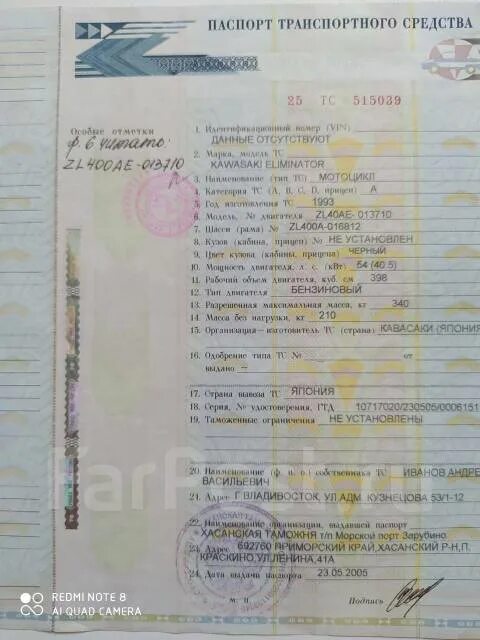 ПАСПОРТ ТРАНСПОРТНОГО СРЕДСТВА
25 ТС 515039
Особые отметки
ф. 6 читать:
ZL400AE-013710
1. Идентификационный номер (VIN)
ДАННЫЕ ОТСУТСТВУЮТ
2. Марка, модель ТС
KAWASAKI ELIMINATOR
3. Наименование (тип ТС) МОТОЦИКЛ
4. Категория ТС (А, В, С, D, прицеп) А
5. Год изготовления ТС 1993
6. Модель, № двигателя ZL40AE- 013710
7. Шасси (рама) № ZL400A-016812
8. Кузов (кабина, прицеп) № НЕ УСТАНОВЛЕН
9. Цвет кузова (кабины, прицепа) ЧЕРНЫЙ
10. Мощность двигателя, л. с. (кВт) 54 (40.5)
11. Рабочий объем двигателя, куб. см 398
12. Тип двигателя БЕНЗИНОВЫЙ
13. Разрешенная максимальная масса, кг 340
14. Масса без нагрузки, кг 210
15. Организация—изготовитель ТС (страна) КАВАСАКИ (ЯПОНИЯ
16. Одобрение типа ТС № от
выдано —
17. Страна вывоза ТС ЯПОНИЯ
18. Серия, № удостоверения, ГТД 10717020/230505/0006151
19. Таможенные ограничения НЕ УСТАНОВЛЕНЫ
20. Наименование (ф. и. о.) собственника ТС ИВАНОВ АНДРЕ
ВАСИЛЬЕВИЧ
21. Адрес Г ВЛАДИВОСТОК, УЛ АДМ. КУЗНЕЦОВА 53/1-12
22. Наименование организации, выдавшей паспорт
ХАСАНСКАЯ ТАМОЖНЯ т/п Морской порт Зарубино
23. Адрес 692760 ПРИМОРСКИЙ КРАЙ,ХАСАНСКИЙ Р-Н,П.
КРАСКИНО,УЛ.ЛЕНИНА,41А
24. Дата выдачи паспорта 23.05.2005
М. П. Подпись
REDMI NOTE 8
AI QUAD CAMERA